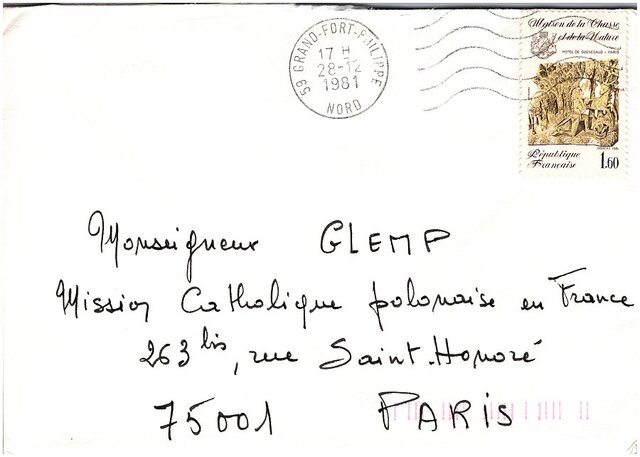 Maison de la Chasse
et de la Nature
HOTEL DE GUENEGAUD - PARIS
République
Française
1.60
59 GRAND-FORT-PHILIPPE
17 H
28-12
1981
NORD
Monseigneur GLEMP
Mission Catholique polonaise en France
263 bis, rue Saint-Honoré
75001 PARIS